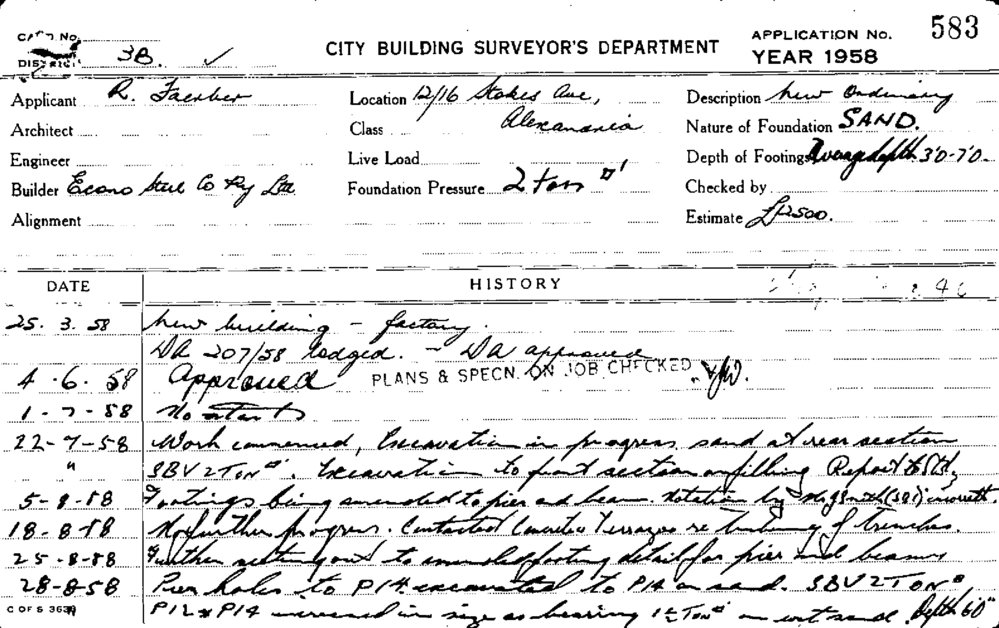 CARD No.
DISTRICT 3B. ✓
CITY BUILDING SURVEYOR'S DEPARTMENT
APPLICATION No. 583
YEAR 1958
Applicant R. Faerber Location 12/16 Stokes Ave, Description New Ordinary
Architect Class Alexandria Nature of Foundation SAND.
Engineer Live Load Depth of Footings Average depth 3'0-7'0
Builder Econo Steel Co Pty Ltd Foundation Pressure 2 tons □' Checked by
Alignment Estimate £12500.
DATE HISTORY
25. 3. 58 New building - factory.
DA 207/58 lodged. - DA approved
4 . 6. 58 Approved PLANS & SPECN. ON JOB CHECKED
1 - 7 - 58 No start
22-7-58 Work commenced, Excavation in progress, sand at rear section
" SBV 2 TON □'. Excavation to front section on filling Report to
5-8-58 Footings being amended to pier and beam. Notation by incorrect.
18-8-58 No further progress. Contacted Concrete Terrazzo re of trenches.
25-8-58 Further setting out to amended footing detail for pier and beams
28-8-58 Pier holes to P14 excavated to P14 on sand. SBV 2 TON □'
C OF S 3639 " P12 & P14 increased in size as bearing 1½ Ton □' on wet sand. Depth 6'0"